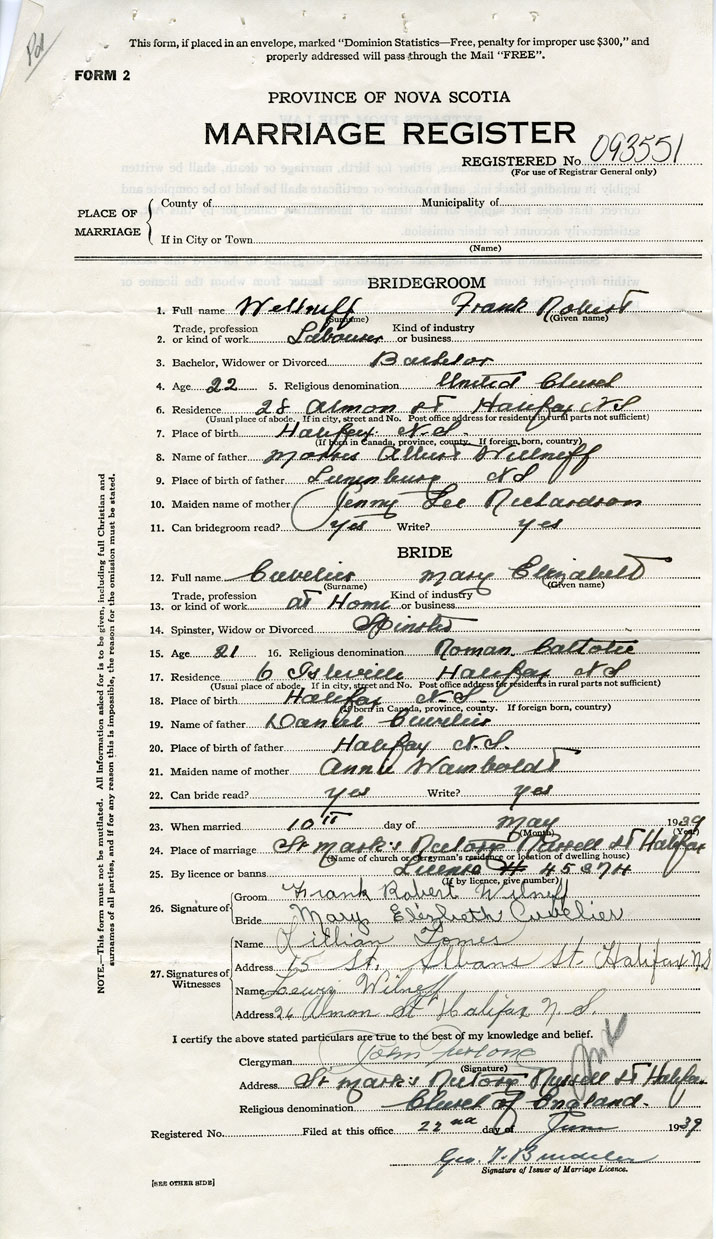 Pd
This form, if placed in an envelope, marked "Dominion Statistics—Free, penalty for improper use $300," and
properly addressed will pass through the Mail "FREE".
FORM 2
PROVINCE OF NOVA SCOTIA
MARRIAGE REGISTER
REGISTERED No. 093551
(For use of Registrar General only)
PLACE OF MARRIAGE
County of Municipality of
If in City or Town
(Name)
BRIDEGROOM
1. Full name Wellniff Frank Robert
(Surname) (Given name)
2. Trade, profession or kind of work Labourer Kind of industry or business
3. Bachelor, Widower or Divorced Bachelor
4. Age 22 5. Religious denomination United Church
6. Residence 28 Almon St Halifax N.S
(Usual place of abode. If in city, street and No. Post office address for residents in rural parts not sufficient)
7. Place of birth Halifax N.S.
(If born in Canada, province, county. If foreign born, country)
8. Name of father Morris Albert Wellniff
9. Place of birth of father Lunenburg NS
10. Maiden name of mother Jenny Lee Richardson
11. Can bridegroom read? yes Write? yes
BRIDE
12. Full name Cuvelier Mary Elizabeth
(Surname) (Given name)
13. Trade, profession or kind of work at Home Kind of industry or business
14. Spinster, Widow or Divorced Spinster
15. Age 21 16. Religious denomination Roman Catholic
17. Residence 6 Isleville Halifax N S
(Usual place of abode. If in city, street and No. Post office address for residents in rural parts not sufficient)
18. Place of birth Halifax N.S.
(If born in Canada, province, county. If foreign born, country)
19. Name of father Daniel Cuvelier
20. Place of birth of father Halifax N.S.
21. Maiden name of mother Annie Wamboldt
22. Can bride read? yes Write? yes
23. When married 10th day of May 1939
(Month) (Year)
24. Place of marriage St Mark's Rectory Russell St Halifax
(Name of church or clergyman's residence or location of dwelling house)
25. By licence or banns Licence # 45374
(If by licence, give number)
26. Signature of
Groom Frank Robert Wilneff
Bride Mary Elizbeth Cuvelier
27. Signatures of Witnesses
Name Lillian Tomes
Address 15 St. Albans St. Halifax N.S
Name Lewis Wilneff
Address 26 Almon St Halifax N. S.
I certify the above stated particulars are true to the best of my knowledge and belief.
Clergyman John
(Signature)
Address St Mark's Rectory Russell St Halifax
Religious denomination Church of England.
Registered No. Filed at this office 22nd day of June 1939
Geo.
Signature of Issuer of Marriage Licence.
[SEE OTHER SIDE]
NOTE.—This form must not be mutilated. All information asked for is to be given, including full Christian and
surnames of all parties, and if for any reason this is impossible, the reason for the omission must be stated.